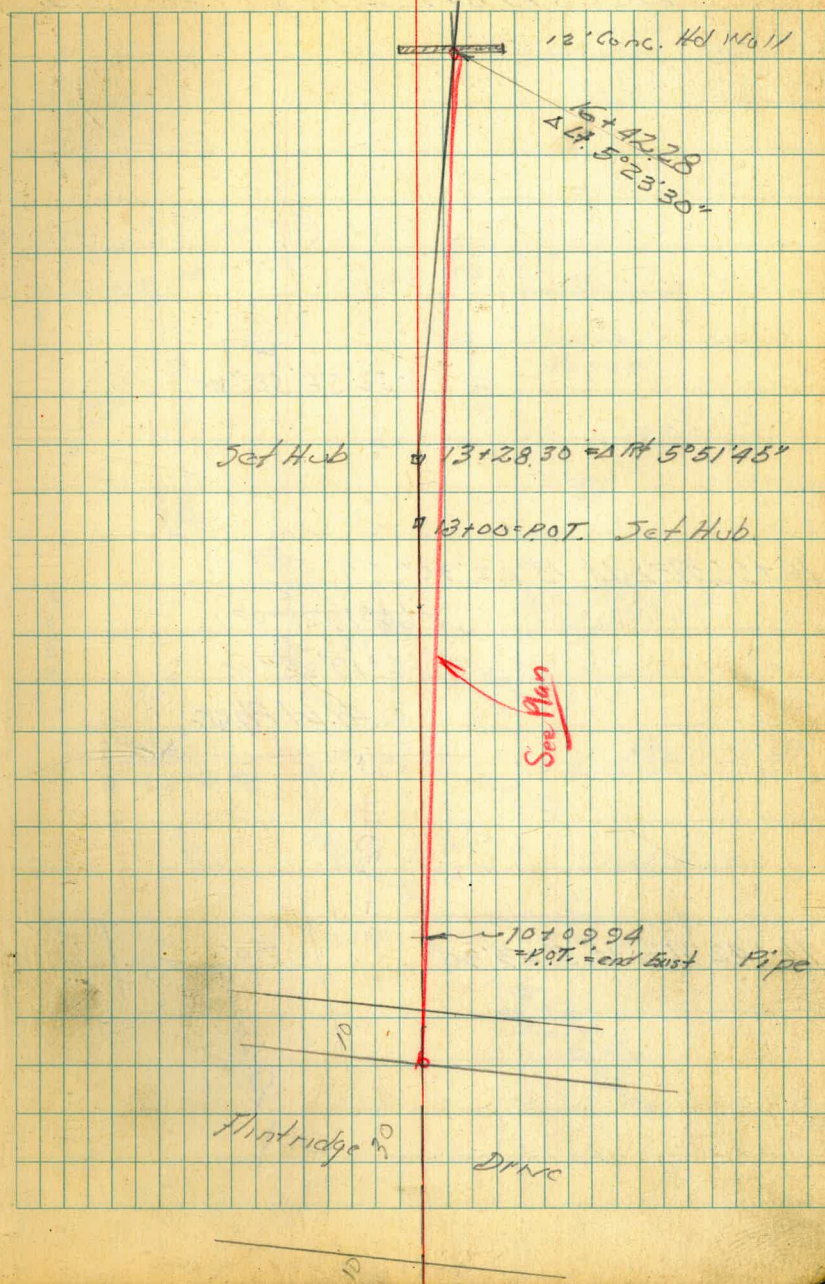 12' Conc. Hd Wall
16+42.28
Δ Lt. 5°23'30"
Set Hub
13+28.30 = Δ Rt 5°51'45"
13+00 = P.O.T. Set Hub.
See Plan
10+09.94
= P.O.T. = end Exist Pipe
10
Flintridge 30 Drive
10